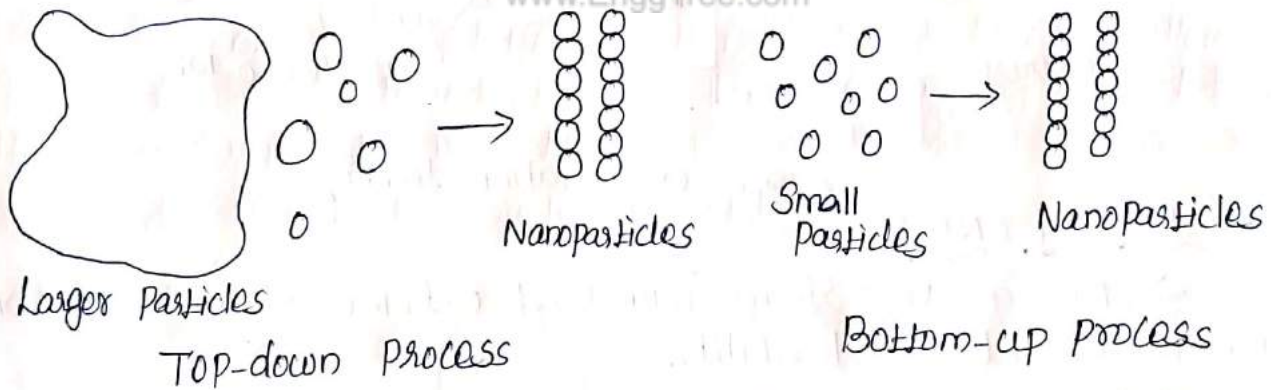 www.EnggTree.com
Nanoparticles
Small
Particles
Nanoparticles
Larger Particles
Top-down Process
Bottom-up process